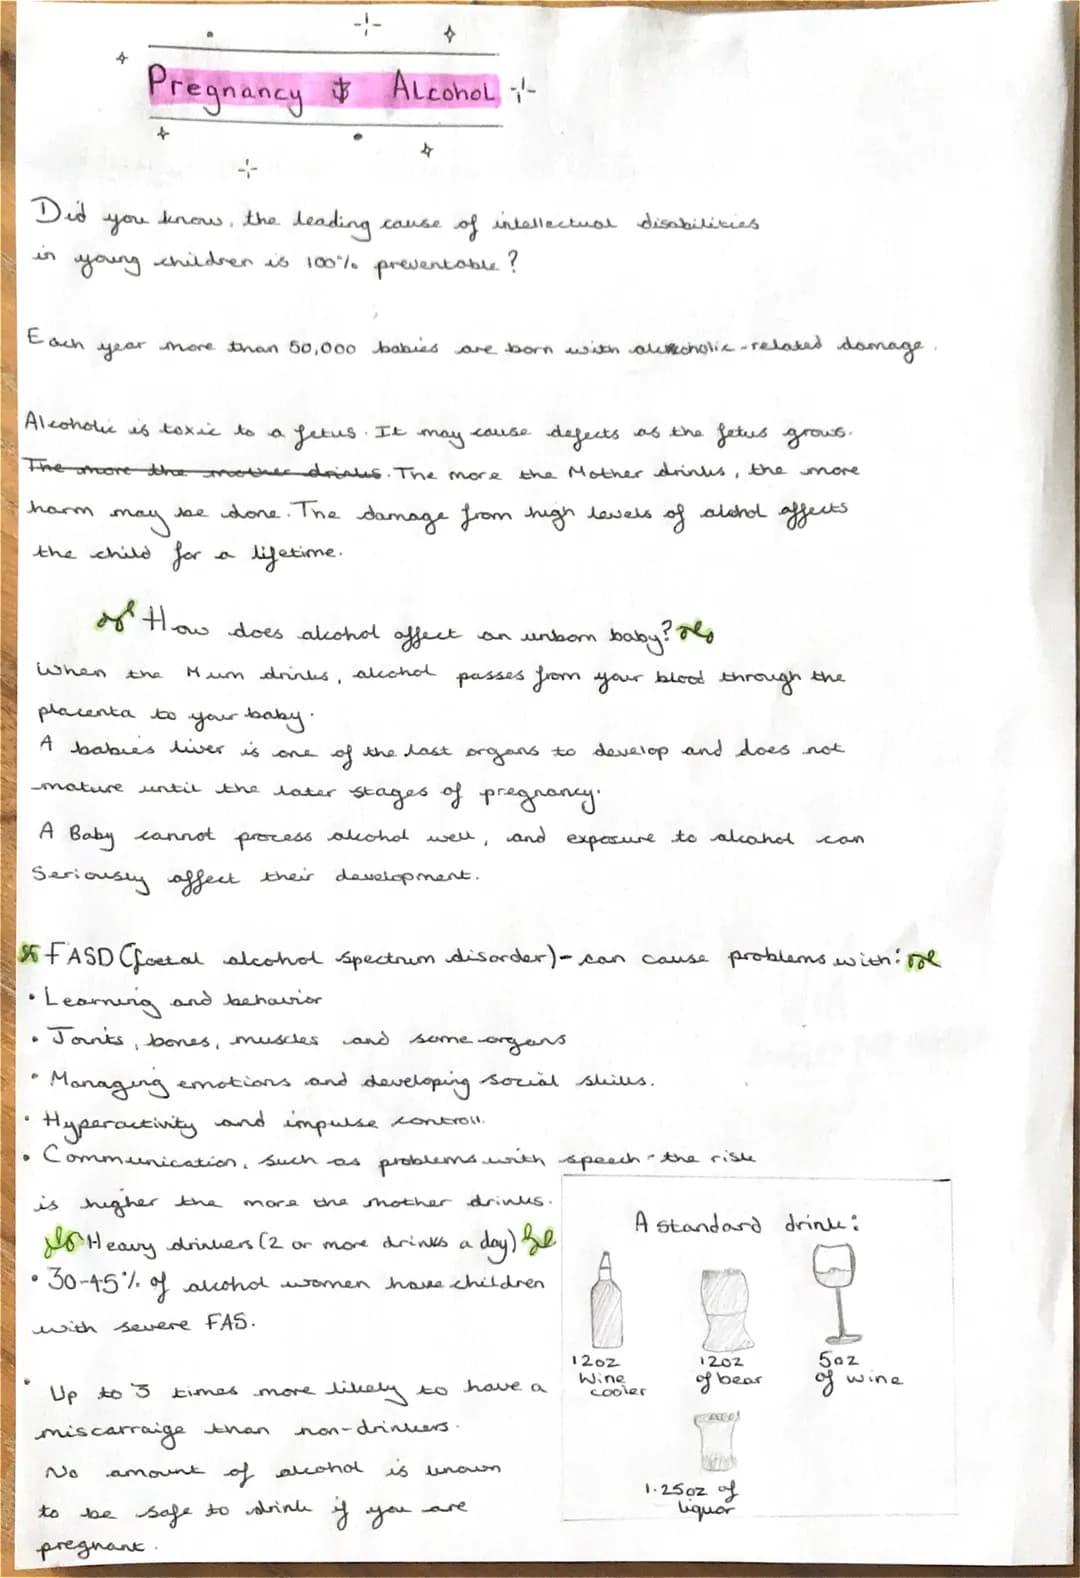 Pregnancy & Alcohol
Did you know, the leading cause of intellectual disabilities
in young children is 100% preventable?
Each year more than 50,000 babies are born with alcoholic-related damage.
Alcoholic is toxic to a fetus. It may cause defects as the fetus grows.
The more the mother drinks. The more the Mother drinks, the more
harm may be done. The damage from high levels of alchol affects
the child for a lifetime.
How does alcohol affect an unborn baby?
When the Mum drinks, alcohol passes from your blood through the
placenta to your baby.
A babies liver is one of the last organs to develop and does not
mature until the later stages of pregnancy.
A Baby cannot process alcohol well, and exposure to alcohol can
Seriously affect their development.
FASD (foetal alcohol spectrum disorder) - can cause problems with:
• Learning and behavior
• Joints, bones, muscles and some organs
• Managing emotions and developing social skills.
• Hyperactivity and impulse controll.
• Communication, such as problems with speech - the risk
is higher the more the mother drinks.
Heavy drinkers (2 or more drinks a day)
• 30-45% of alcohol women have children
with severe FAS.
• Up to 3 times more likely to have a
miscarraige than non-drinkers.
No amount of alcohol is known
to be safe to drink if you are
pregnant.
A standard drink:
12oz
Wine
cooler
12oz
of bear
5oz
of wine
1.25oz of
liquor